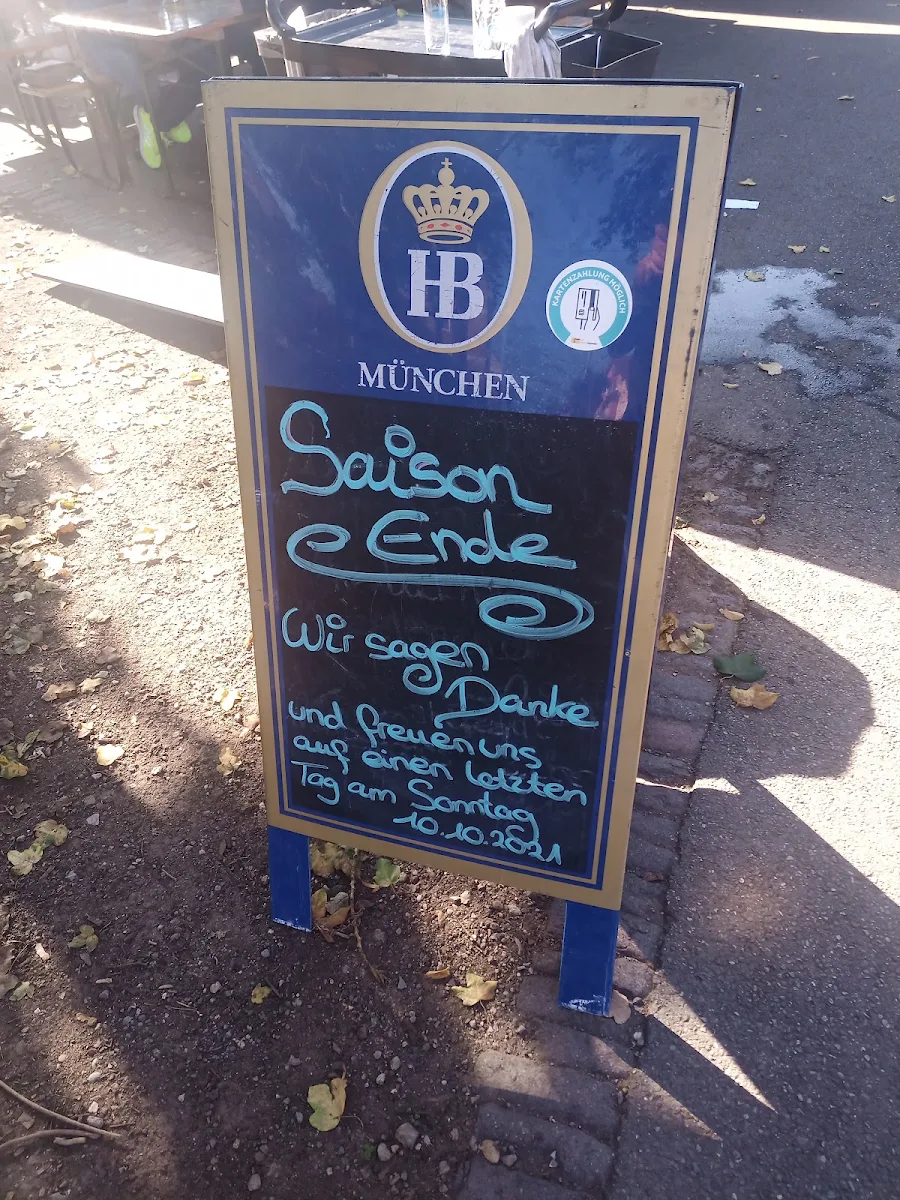 HB
KARTENZAHLUNG MÖGLICH
MÜNCHEN
Saison
Ende
Wir sagen
Danke
und freuen uns
auf einen letzten
Tag am Sonntag
10.10.2021